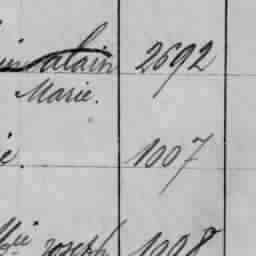 alain 2692
Marie.
e. 1007
Joseph 1098